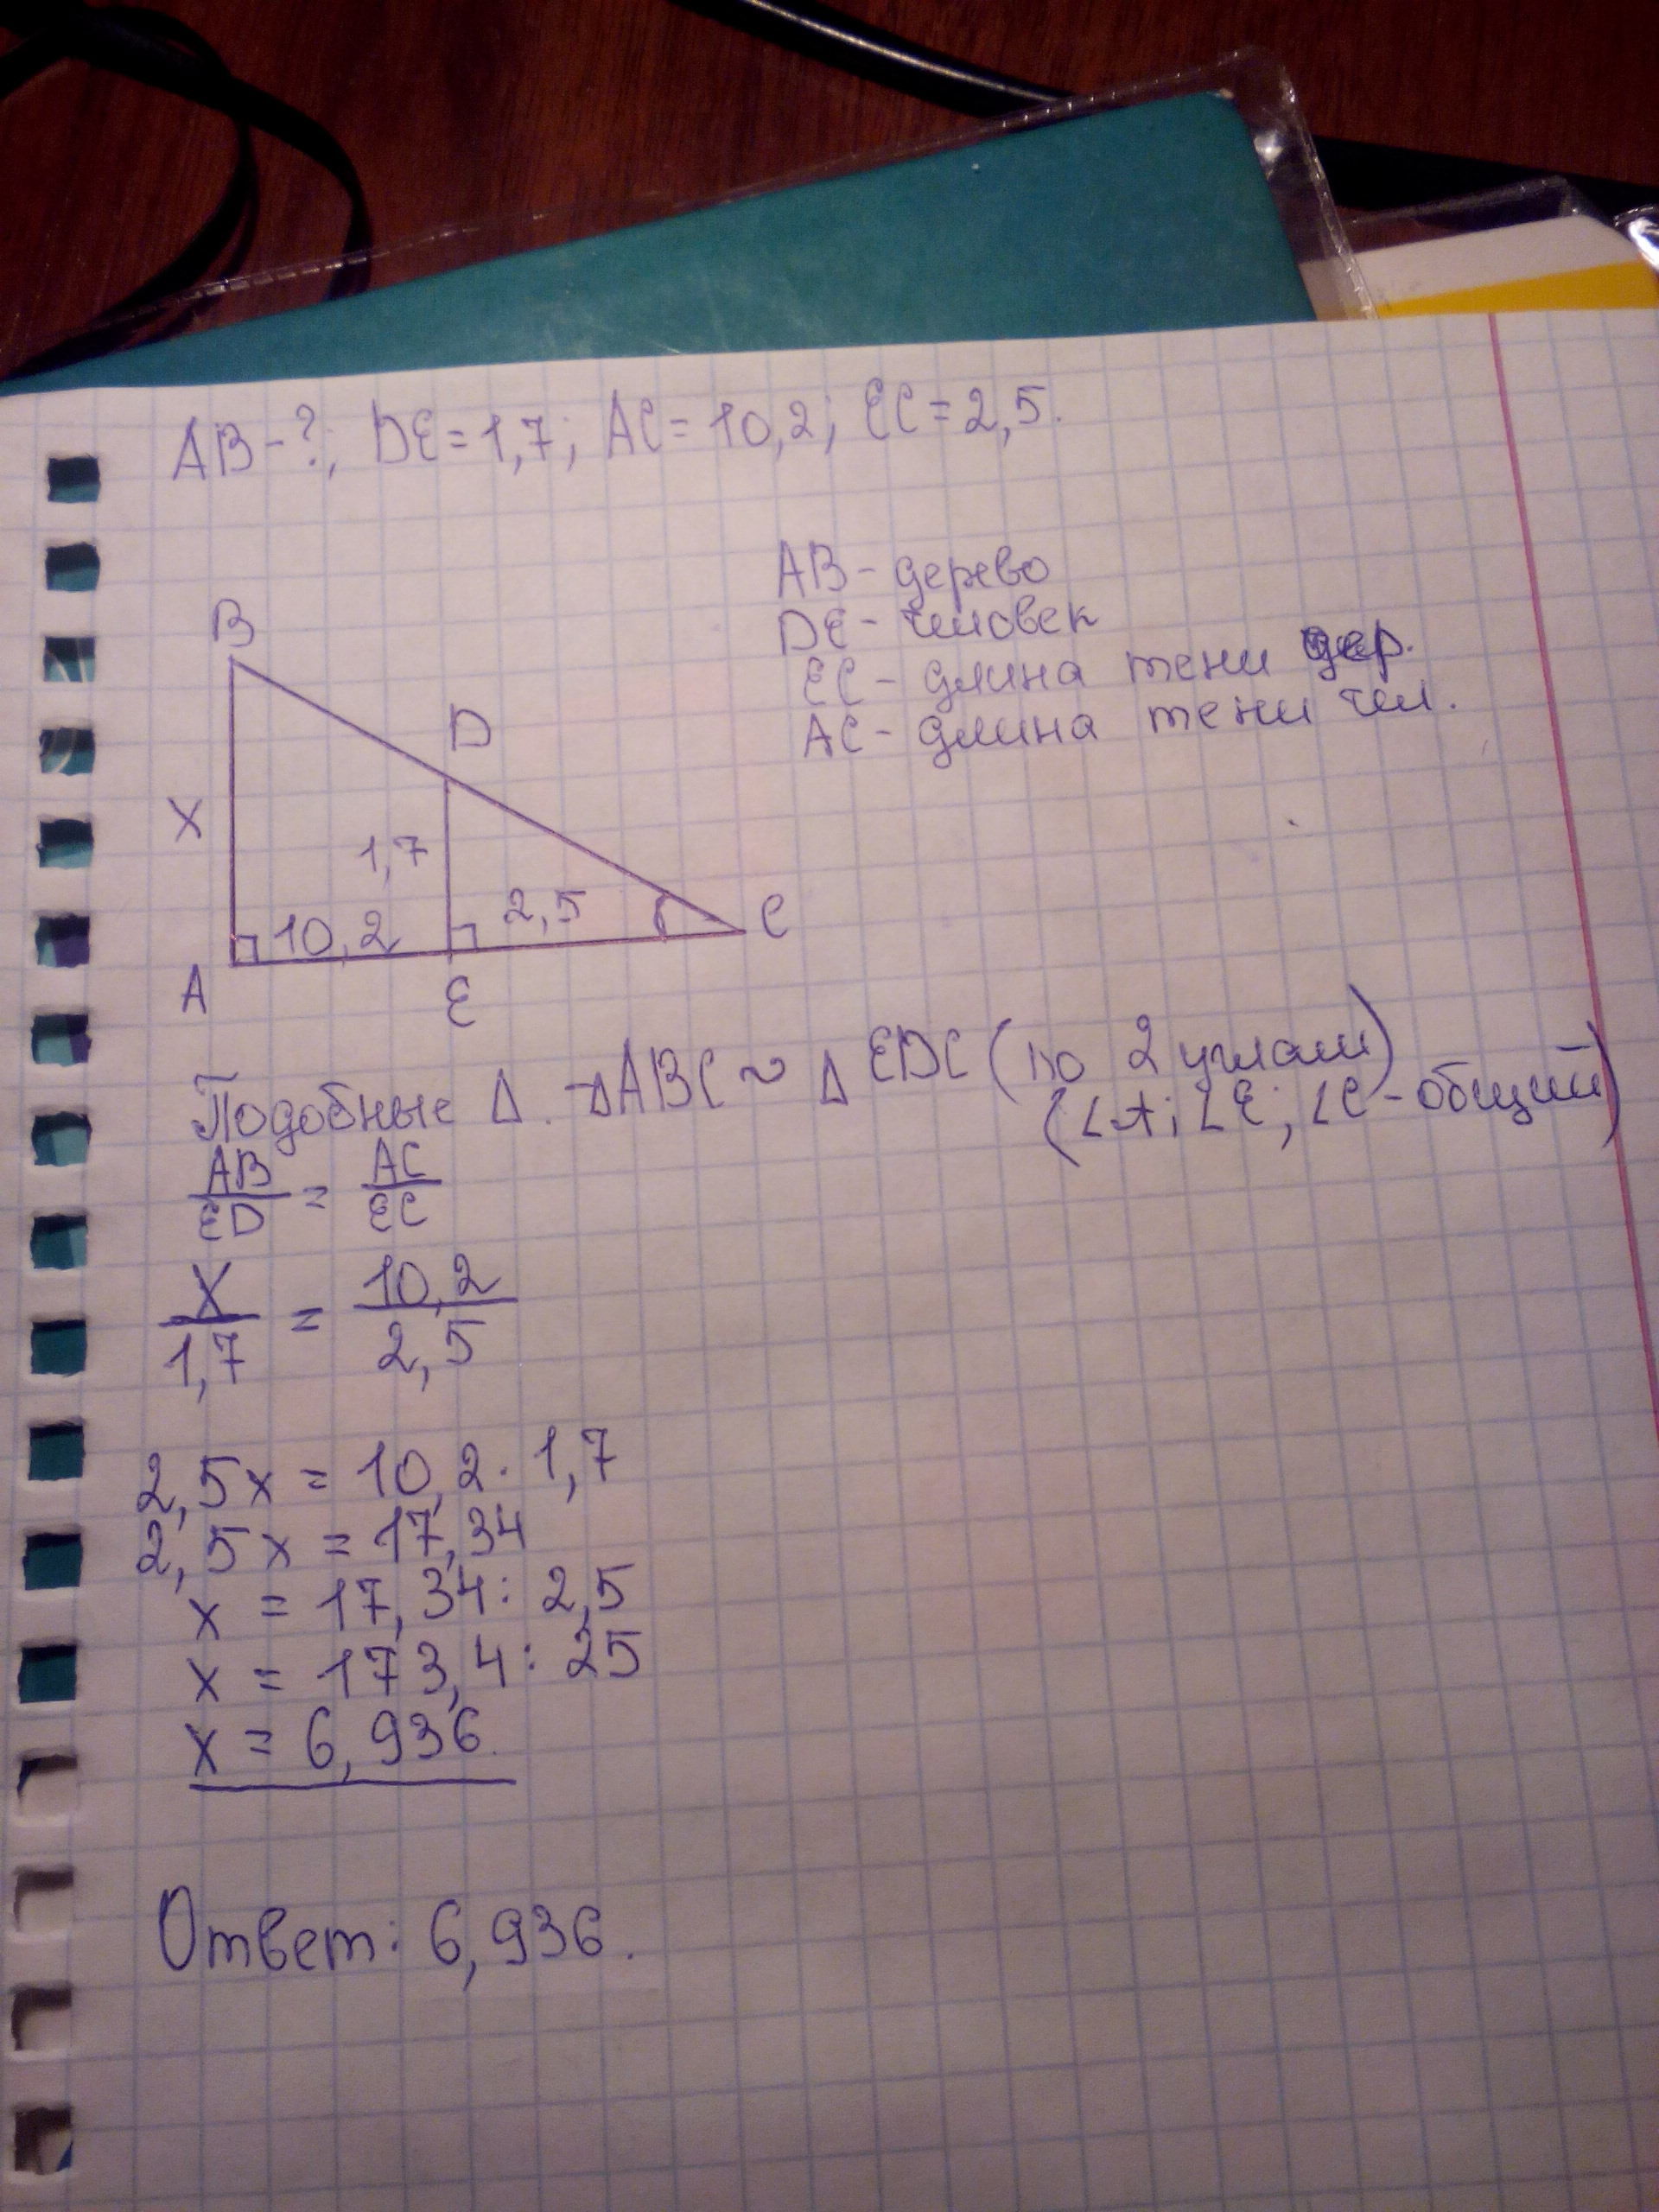 AB-?; DE=1,7; AC=10,2; EC=2,5.
AB- дерево
DE- человек
EC- длина тени дер.
AC- длина тени чел.
B
D
X
1,7
2,5
C
10,2
A
E
Подобные Δ. ΔABC ~ Δ EDC (по 2 углам)
(∠A; ∠E; ∠C - общий)
AB/ED = AC/EC
X/1,7 = 10,2/2,5
2,5x = 10,2 · 1,7
2,5x = 17,34
x = 17,34 : 2,5
x = 173,4 : 25
x = 6,936.
Ответ: 6,936.